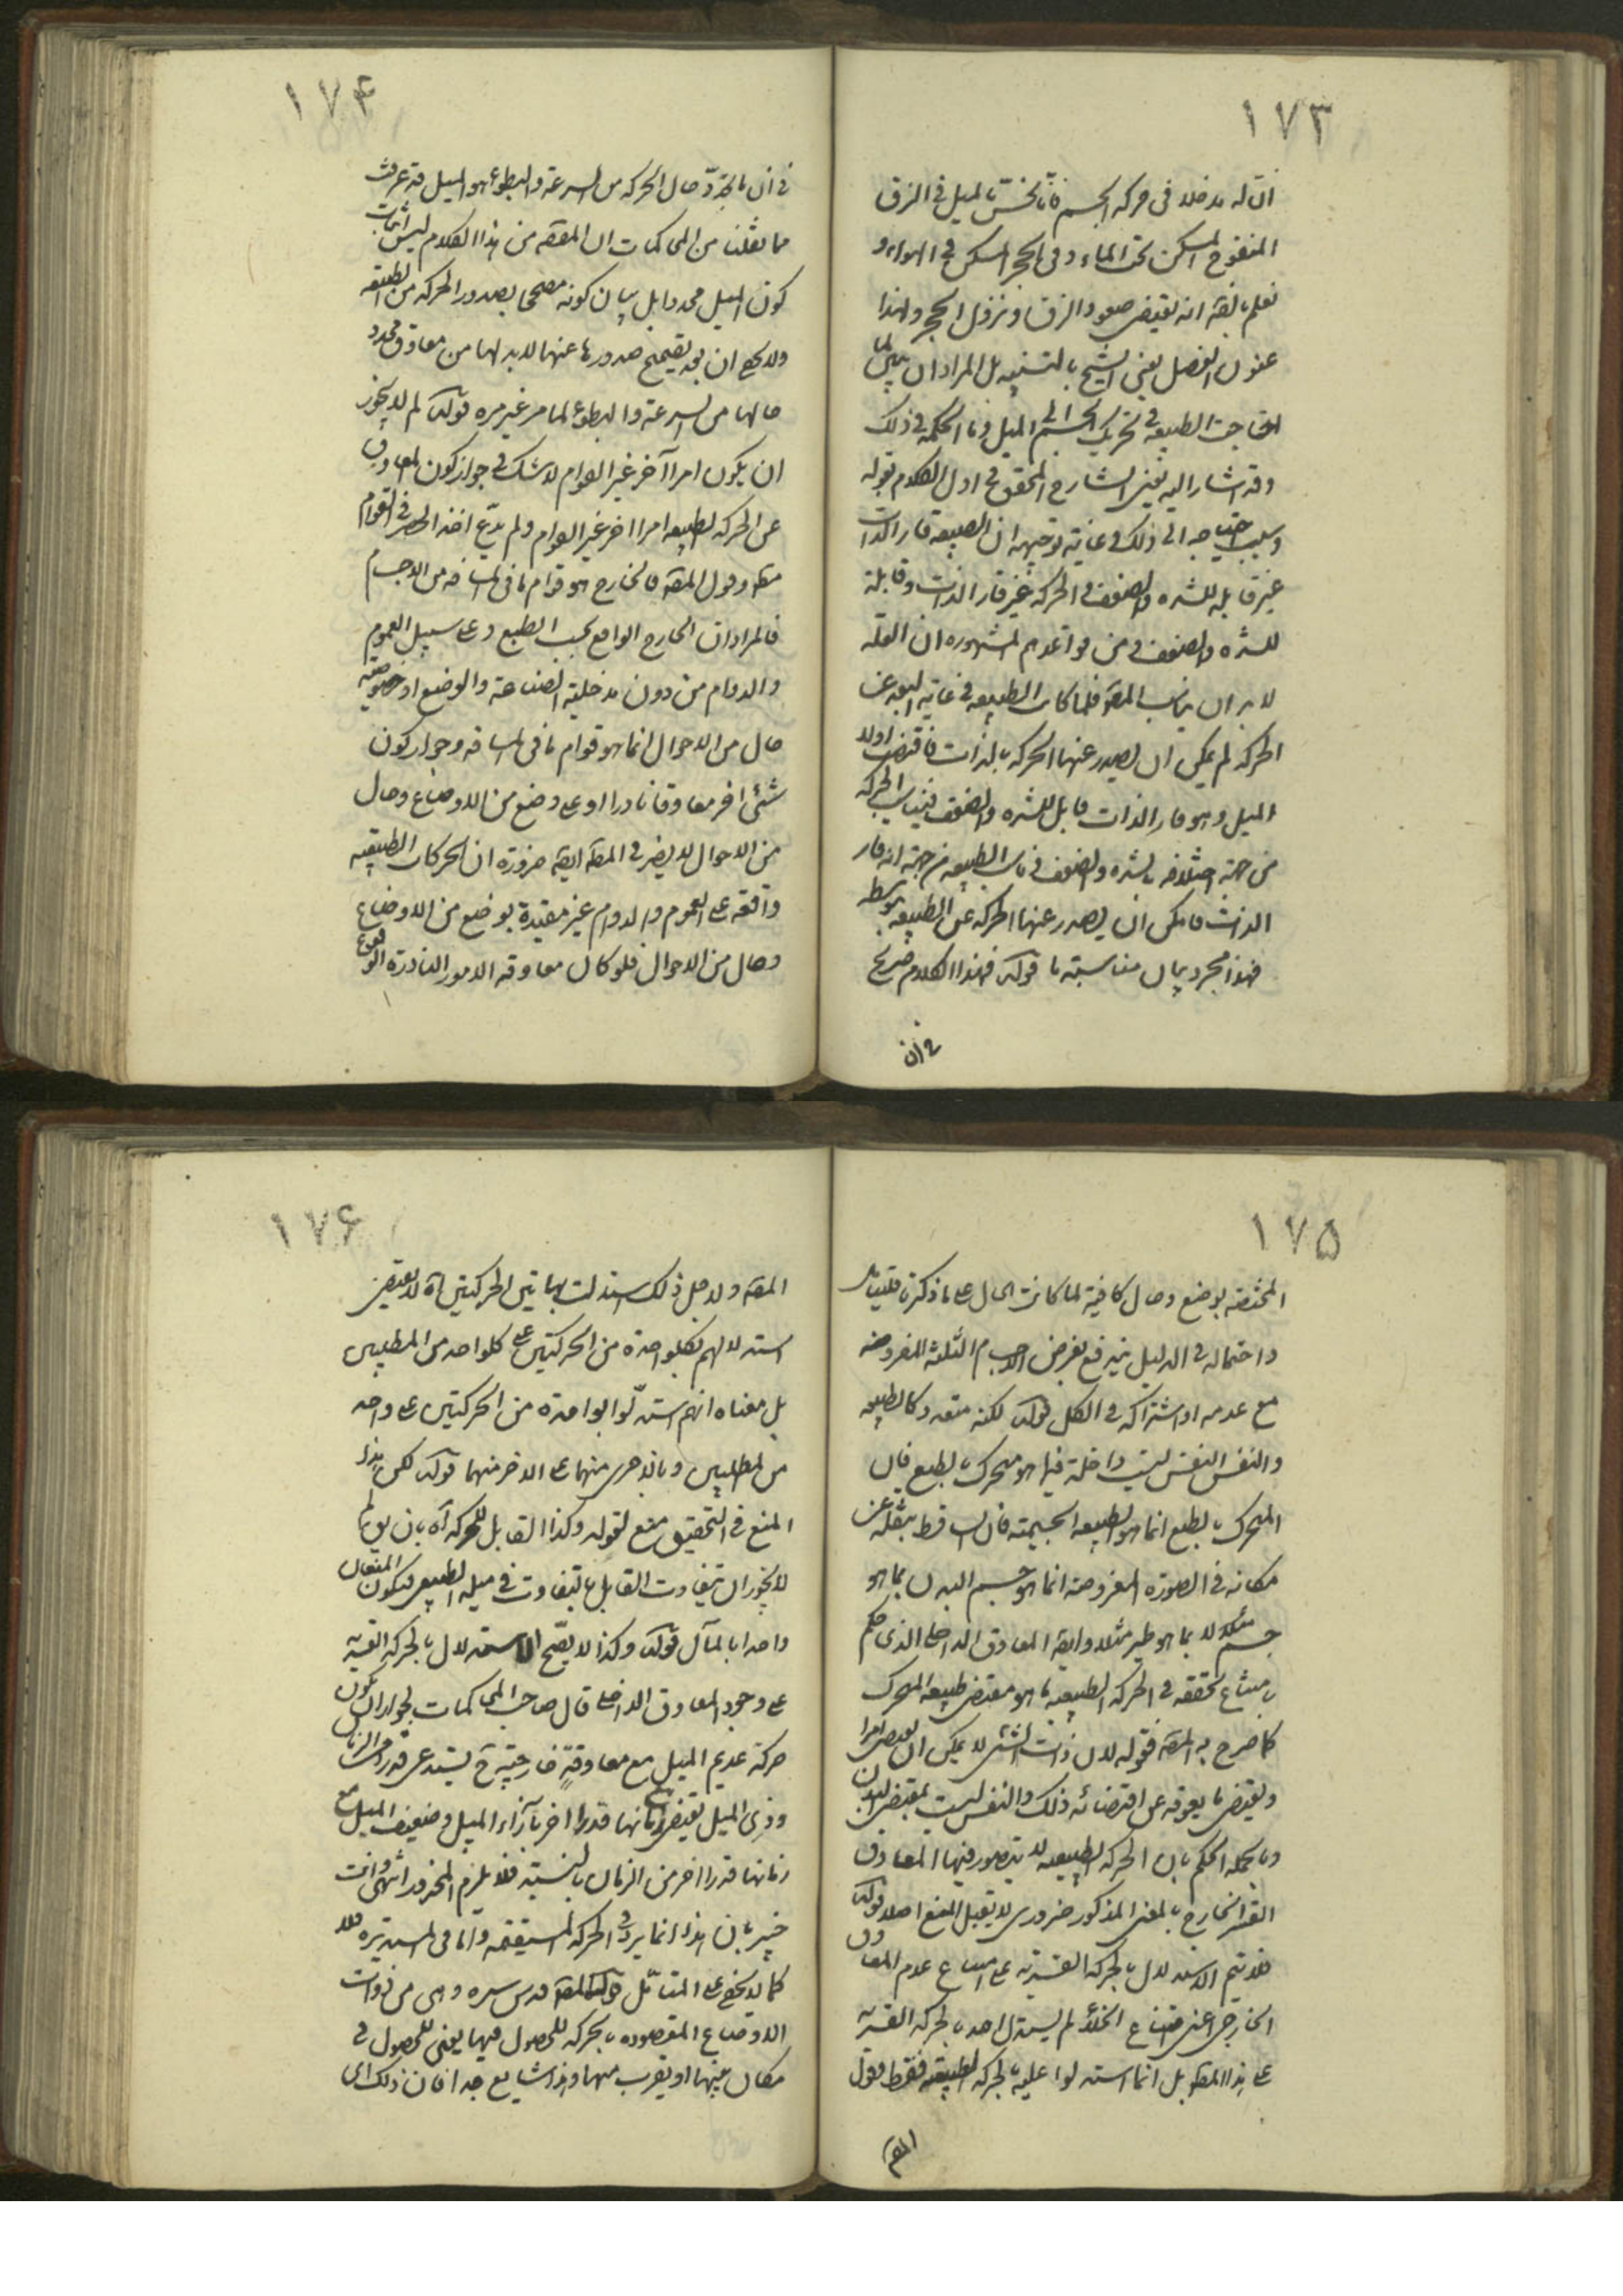 ١٧٣
ان له مدخلا فى حركة الجسم فانا نحسّ بالميل فى الزق
المنفوخ المسكن تحت الماء وفى الحجر المسكن فى الهواء و
نعلم بالضرة انه يقتضى صعود الزق ونزول الحجر ولهذا
عنون الفصل يعنى الشيخ بالتنبيه بل المراد ان
احتاجت الطبيعه فى تحريك الجسم الى الميل وما الحكمه فى ذلك
وقد اشار اليه يعنى الشارح المحقق فى اول الكلام بقوله
وسبب احتياجه الى ذلك فى غاية توجيهه ان الطبيعه قار الذات
غير قابله للشده والضعف والحركه غير قار الذات وقابلة
للشده والضعف ومن قواعدهم المشهوره ان العله
لا بد ان يناسب المعلول فلما كان الطبيعه فى غاية البعد عن
الحركه لم يمكن ان يصدر عنها الحركه بالذات فاقتضت اولا
الميل وهو قار الذات قابل للشده والضعف فيناسب الحركه
من جهة اختلافه بالشده والضعف ويناسب الطبيعه من جهة انه قار
الذات فامكن ان يصدر عنها الحركه عن الطبيعه بتوسطه
فهذا مجرد بيان مناسبته ما قوله فهذا الكلام صريح
فى ان
١٧٤
فى ان ما يحدّد حال الحركه من السرعة والبطوء هو الميل قد عرفت
مما نقلنا من المحاكمات ان المقصّ من هذا الكلام ليس اثبات
كون الميل محددا بل بيان كونه مصححا بصدور الحركه من الطبيعه
ولا يخفى ان بعد تصحيح صدورها عنها لابد لها من معاوق محدد
حالها من السرعة والبطوء لما مر غير مره قوله لم لا يجوز
ان يكون امرا آخر غير القوام لا شك فى جواز كون المعاوق
عن الحركه الطبيعه امرا اخر غير القوام ولم يدّع احد الحصر فى القوام
مطلقا وقول المصّ فالخارج هو قوام ما فى المسافه من الاجسام
فالمراد ان الخارج الواقع بحسب الطبع وعلى سبيل العموم
والدوام من دون مدخلية الصناعة والوضع او خصوصية
حال من الاحوال انما هو قوام ما فى المسافه وجواز كون
شئ اخر معاوقا نادرا او على وضع من الاوضاع وحال
من الاحوال لا يضر فى المقصّ ايضا ضرورة ان الحركات الطبيعيه
واقعه على العموم والدوام غير مقيدة بوضع من الاوضاع
وحال من الاحوال فلو كان معاوقه الامور النادرة الوقوع
١٧٥
المختصه بوضع وحال كافية لما كانت الحال على ما ذكر
واحتماله فى الدليل يندفع بفرض الاجسام الثلثة المفروضه
مع عدمه او اشتراكه فى الكل قوله لكنه متعدد كالطبيعه
والنفس النفس ليست داخلة فيما هو متحرك بالطبع فان
المتحرك بالطبع انما هو الطبيعه الجسميته فان الساقط بثقله عن
مكانه فى الصورة المفروضه انما هو جسم البدن بما هو
جسم مثلا لا بما هو طير مثلا وايضا المعاوق الداخلى الذى حكم
بامتناع تحققه فى الحركه الطبيعيه ما هو مقتضى طبيعه المتحرك
كما صرح به المصّ بقوله لان ذات الشئ لا يمكن ان يقتضى امرا
ويقتضى ما يعوقه عن اقتضائه ذلك والنفس ليست بمقتضى البدن
وبالجمله الحكم بان الحركه الطبيعيه لا يتصور فيها المعاوق
الغير الخارج بالمعنى المذكور ضرورى لا يقبل المنع اصلا قوله
فلا يتم الاستدلال بالحركه القسريه على امتناع عدم المعاوق
الخارجى اعنى امتناع الخلأ لم يستدل احد بالحركه القسريه
على هذا المطّ بل انما استدلوا عليه بالحركه الطبيعيه فقط فقول
المصّ
١٧۶
المصّ ولاجل ذلك استدلت بهاتين الحركتين آه لا يقتضى
استدلالهم بكل واحدة من الحركتين على كل واحد من المطلبين
بل معناه انهم استدلّوا بواحدة من الحركتين على واحد
من المطلبين وبالاخرى منهما على الاخر منهما قوله لكن هذا
المنع فى التحقيق منع لقوله وكذا القابل للحركه آه بان يق لم
لا يجوز ان يتفاوت القابل بالتفاوت فى ميله الطبيعى فيكون المنعان
واحدا بالمآل قوله وكذا لا يصّح الاستدلال بالحركه القسريه
على وجود المعاوق الداخلى قال صاحب المحاكمات لجواز ان يكون
حركة عديم الميل مع معاوقة خارجية ح يستدعى قدرا من الزمان
وذى الميل يقتضى زمانها قدرا اخر بازاء الميل وضعيف الميل مع
زمانها قدرا اخر من الزمان بالنسبة فلا يلزم المحذور انتهى وانت
خبير بان هذا انما يرد فى الحركه المستقيمه واما فى المستديره فلا
كما لا يخفى على المتأمّل قول المصّ قدس سره وهى من ذوات
الاوضاع المقصوده بحركه للحصول فيها يعنى للحصول فى
مكان منها او يقرب منها وهذا شايع جدا فان ذلك اى